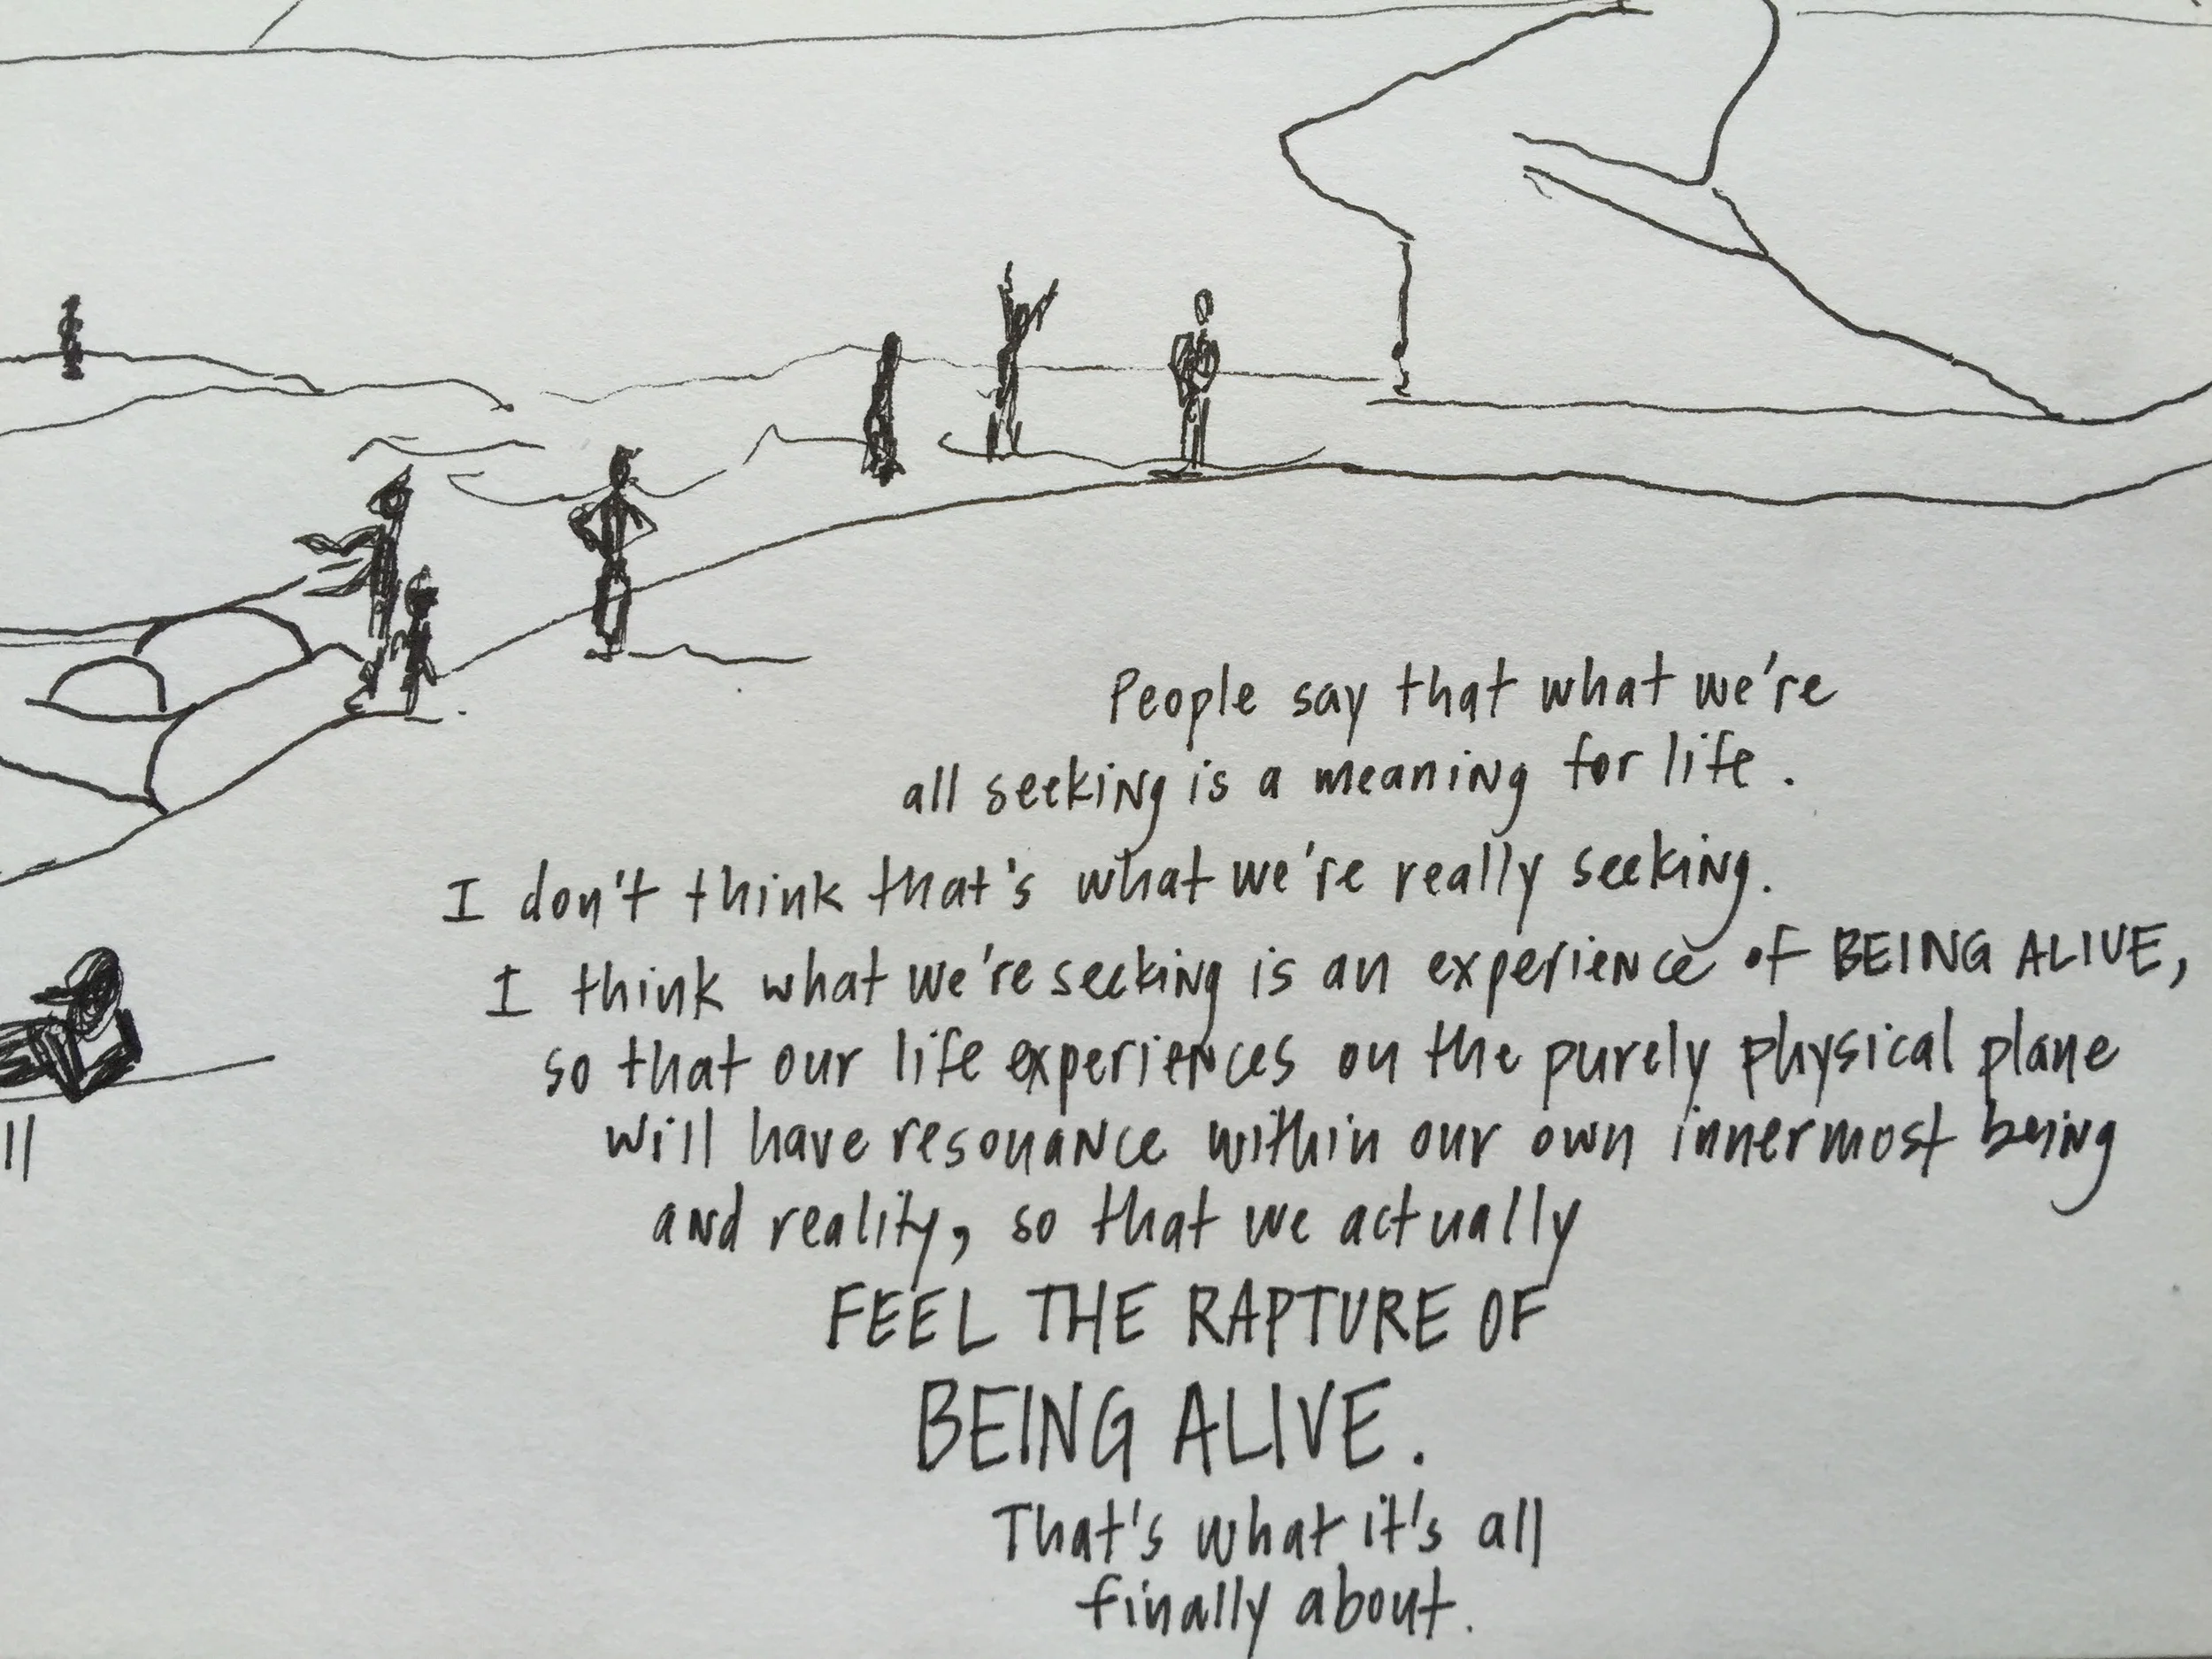 People say that what we're
all seeking is a meaning for life.
I don't think that's what we're really seeking.
I think what we're seeking is an experience of BEING ALIVE,
so that our life experiences on the purely physical plane
will have resonance within our own innermost being
and reality, so that we actually
FEEL THE RAPTURE OF
BEING ALIVE.
That's what it's all
finally about.